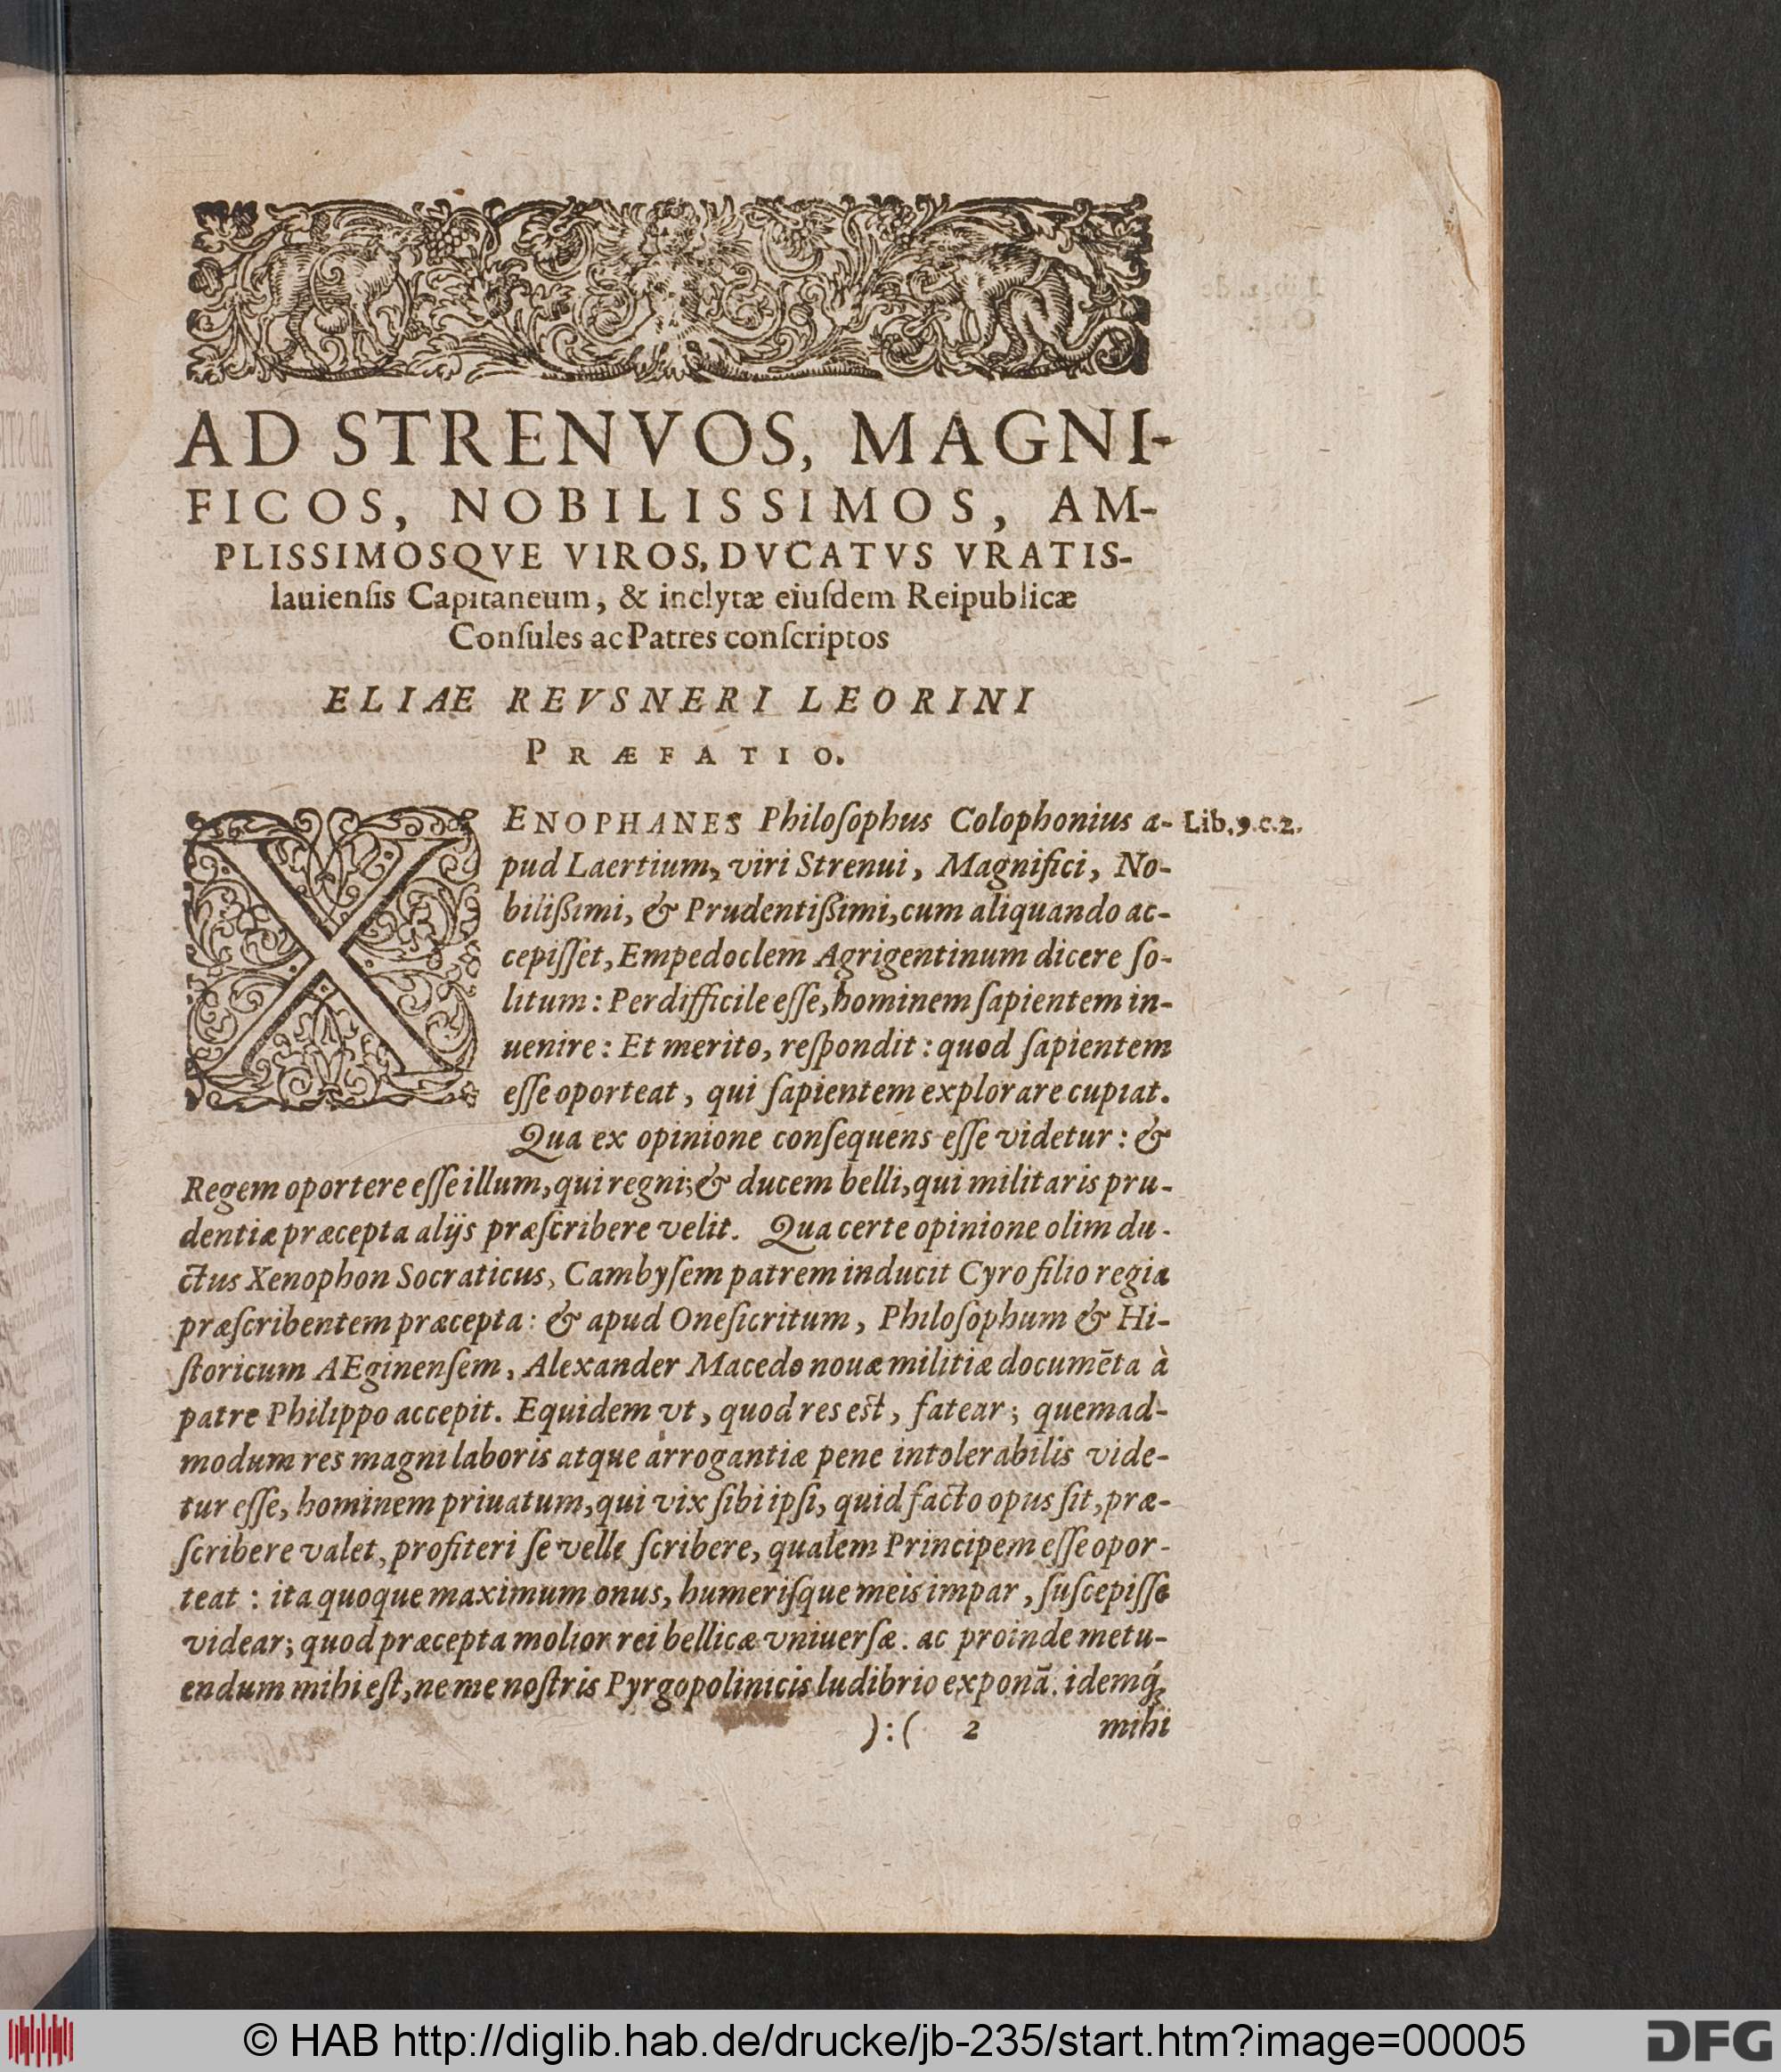 AD STRENVOS, MAGNI-
FICOS, NOBILISSIMOS, AM-
PLISSIMOSQVE VIROS, DVCATVS VRATIS-
lauienſis Capitaneum, & inclytæ eiuſdem Reipublicæ
Conſules ac Patres conſcriptos
ELIAE REVSNERI LEORINI
PRÆFATIO.
XENOPHANES Philoſophus Colophonius a- Lib. 9. c. 2.
pud Laertium, viri Strenui, Magnifici, No-
bilißimi, & Prudentißimi, cum aliquando ac-
cepiſſet, Empedoclem Agrigentinum dicere ſo-
litum: Perdifficile eſſe, hominem ſapientem in-
uenire: Et merito, reſpondit: quod ſapientem
eſſe oporteat, qui ſapientem explorare cupiat.
Qua ex opinione conſequens eſſe videtur: &
Regem oportere eſſe illum, qui regni; & ducem belli, qui militaris pru-
dentiæ præcepta alijs præſcribere velit. Qua certe opinione olim du-
ctus Xenophon Socraticus, Cambyſem patrem inducit Cyro filio regia
præſcribentem præcepta: & apud Oneſicritum, Philoſophum & Hi-
ſtoricum AEginenſem, Alexander Macedo nouæ militiæ documēta à
patre Philippo accepit. Equidem vt, quod res est, fatear; quemad-
modum res magni laboris atque arrogantiæ pene intolerabilis vide-
tur eſſe, hominem priuatum, qui vix ſibi ipſi, quid facto opus ſit, præ-
ſcribere valet, profiteri ſe velle ſcribere, qualem Principem eſſe opor-
teat: ita quoque maximum onus, humeriſque meis impar, ſuſcepiſſe
videar; quod præcepta molior rei bellicæ vniuerſæ. ac proinde metu-
endum mihi eſt, ne me noſtris Pyrgopolinicis ludibrio exponā. idemq́;
):( 2 mihi
© HAB http://diglib.hab.de/drucke/jb-235/start.htm?image=00005
DFG